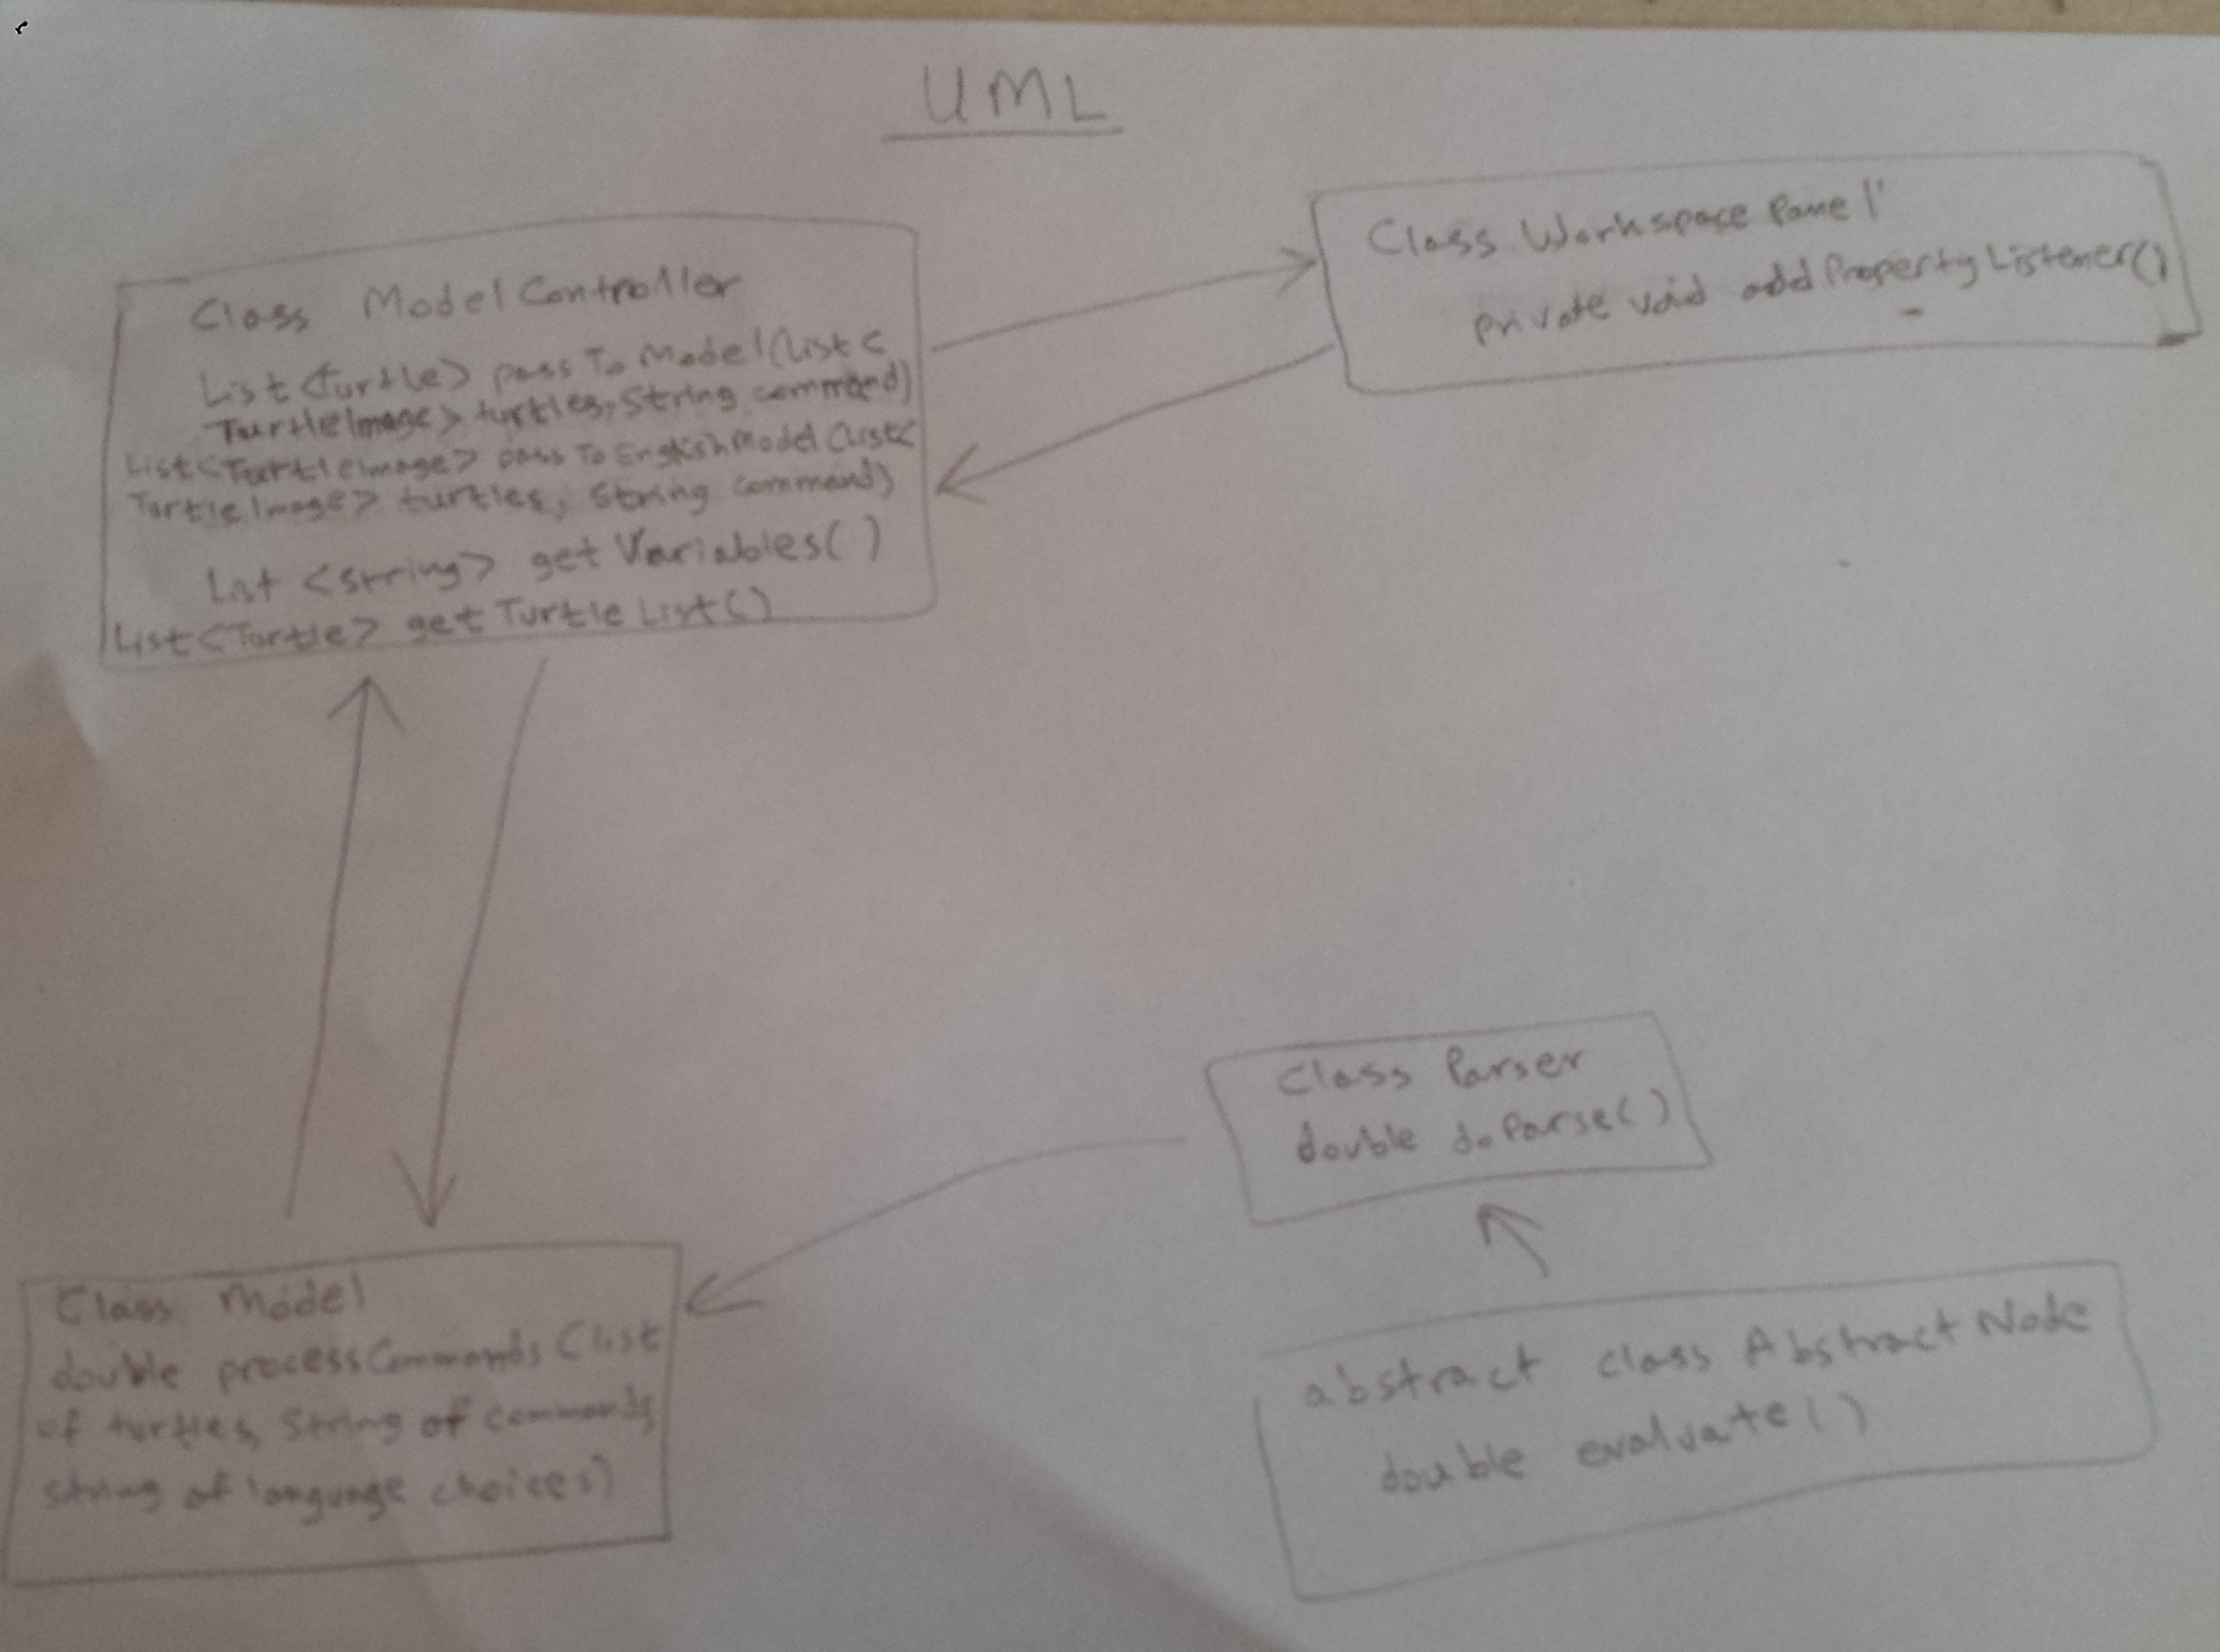 UML
Class ModelController
List<Turtle> passToModel(List<
TurtleImage> turtles, String command)
List<TurtleImage> passToEnglishModel(List<
TurtleImage> turtles, String command)
List <String> getVariables()
List<Turtle> getTurtleList()
Class WorkspacePanel
private void addPropertyListener()
Class Parser
double doParse()
Class Model
double processCommands (list
of turtles, String of commands,
string of language choices)
abstract class AbstractNode
double evaluate()